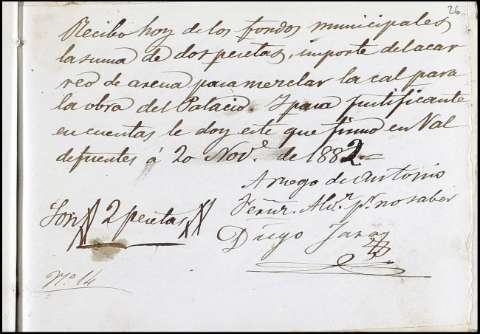 26
Recibo hoy de los fondos municipales
la suma de dos pesetas, importe del acar
reo de arena para mezclar la cal para
la obra del Palacio. Y para justificante
en cuentas le doy este que firmo en Val
defuentes á 20 Nov.e de 1882.=
A ruego de Antonio
p.r no saber
Son # 2 pesetas #
Diego
N.o 14